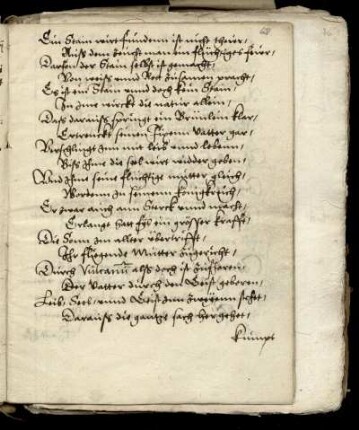 Ein Stain wirt funden ist nicht theuer,
Auß dem zeucht man ein flüchtiges feür,
Darfon der Stain selbst ist gemacht,
Von weiß vnnd Rot zusamen pracht,
Es ist ein Stain vnnd doch kein Stain,
In Ime wirckt die natur allein,
Daß darauß springt ein Brünlein klar,
Ertrenckt seinen fixen vatter gar,
Verschlingt Inn mit leib vnnd leben,
Biß Ihme die sel wirt widder geben,
Vnd Ihme seine flüchtige mutter gleich,
Worden in seinem königreich,
Er zwar auch an Sterck vnnd macht,
Erlangt hatt sehr grösser krafft,
Die Sonn Im allter übertrifft,
Ihr fliegende Mutter zugericht,
Durch Vulcanū alß doch ist
Der Vatter durch den Geist geboren,
Leib, Seel, vnnd Geist Inn Zweyenn steht,
Darauß die gantze sach hergehet,
Kümpt